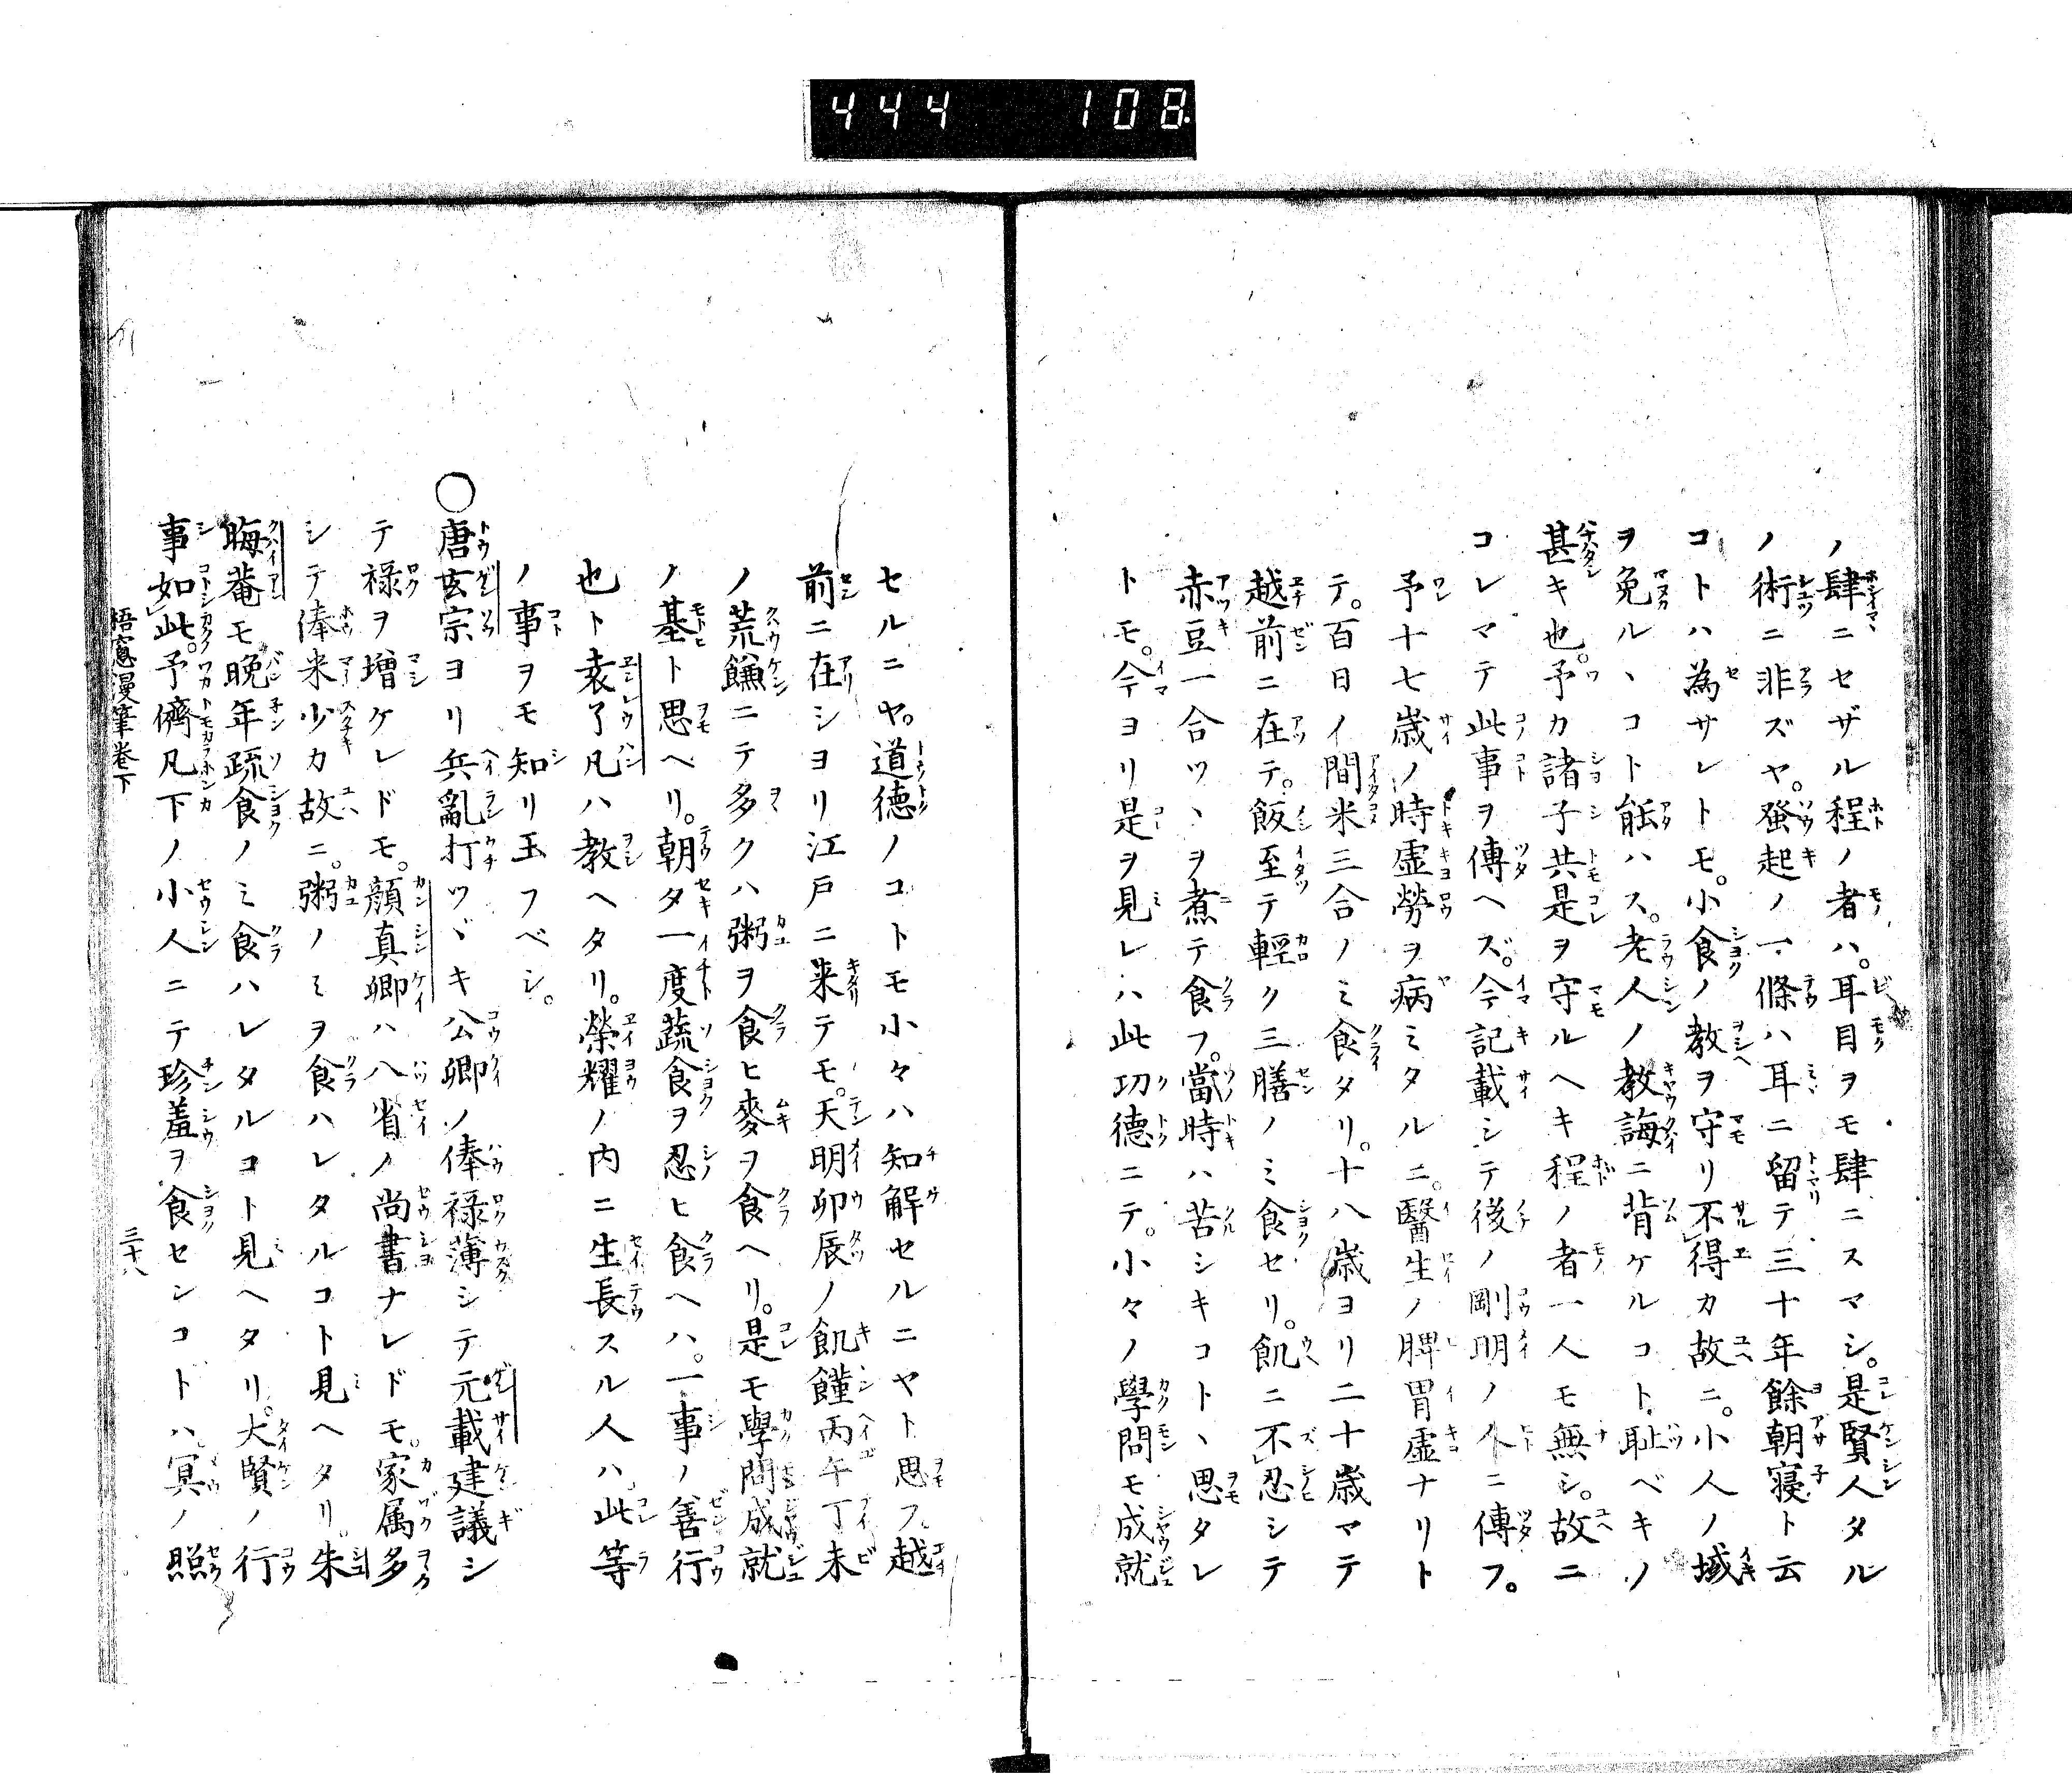 444 108
ノ肆ニセザル程ノ者ハ。耳目ヲモ肆ニスマシ。是賢人タル
ノ術ニ非ズヤ。蚤起ノ一條ハ耳ニ留テ三十年餘朝寝ト云
コトハ為サレトモ。小食ノ教ヲ守リ不得カ故ニ。小人ノ域
ヲ免ルヽコト能ハス。老人ノ教誨ニ背ケルコト恥ベキノ
甚キ也。予カ諸子共是ヲ守ルヘキ程ノ者一人モ無シ。故ニ
コレマテ此事ヲ傳ヘズ。今記載シテ後ノ剛明ノ人ニ傳フ。
予十七歳ノ時虚勞ヲ病ミタルニ。醫生ノ脾胃虚ナリト
テ。百日イ間米三合ノミ食タリ。十八歳ヨリ二十歳マテ
越前ニ在テ。飯至テ輕ク三膳ノミ食セリ。飢ニ不忍シテ
赤豆一合ツヽヲ煮テ食フ。當時ハ苦シキコトヽ思タレ
トモ。今ヨリ是ヲ見レハ此功德ニテ。小々ノ學問モ成就
セルニヤ。道德ノコトモ小々ハ知解セルニヤト思フ。越
前ニ在シヨリ江戸ニ来テモ。天明卯辰ノ飢饉丙午丁未
ノ荒饑ニテ多クハ粥ヲ食ヒ麥ヲ食ヘリ。是モ學問成就
ノ基ト思ヘリ。朝夕一度蔬食ヲ忍ヒ食ヘハ。一事ノ善行
也ト袁了凡ハ教ヘタリ。榮耀ノ内ニ生長スル人ハ。此等
ノ事ヲモ知リ玉フベシ。
〇唐玄宗ヨリ兵亂打ツヾキ公卿ノ俸禄薄シテ元載建議シ
テ禄ヲ増ケレドモ。顔真卿ハ八省ノ尚書ナレドモ。家属多
シテ俸米少カ故ニ。粥ノミヲ食ハレタルコト見ヘタリ。朱
晦菴モ晩年疏食ノミ食ハレタルコト見ヘタリ。大賢ノ行
事如此。予儕凡下ノ小人ニテ珍羞ヲ食センコトハ。冥ノ照
梧窓漫筆巻下 三十八